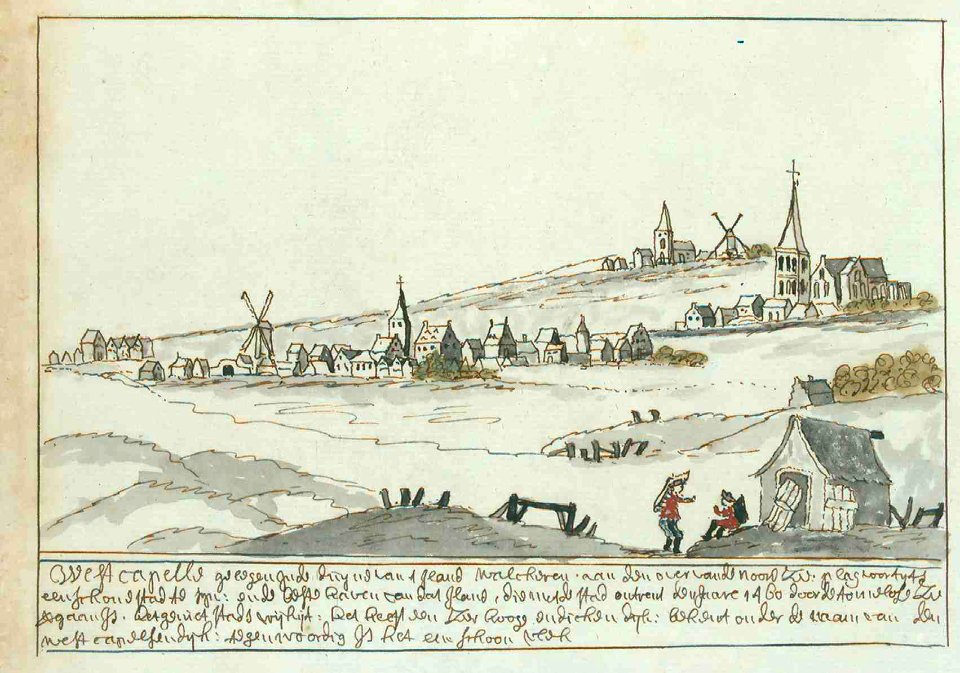 West capelle gelegen inde duijne van 't Iland Walcheren. aan den oever vande Noord Zee. plag voortijts
een schone stad te zijn: ende beste haven van dat Iland, die met de stad ontrent de jaare 1460 door de Zee
vergaan is. het geniet stads vrijheijt: het heeft een zeer hooge en dicken dijk: bekent onder de naam van den
west capelsen dijk: tegenwoordig is het een schoon vlek